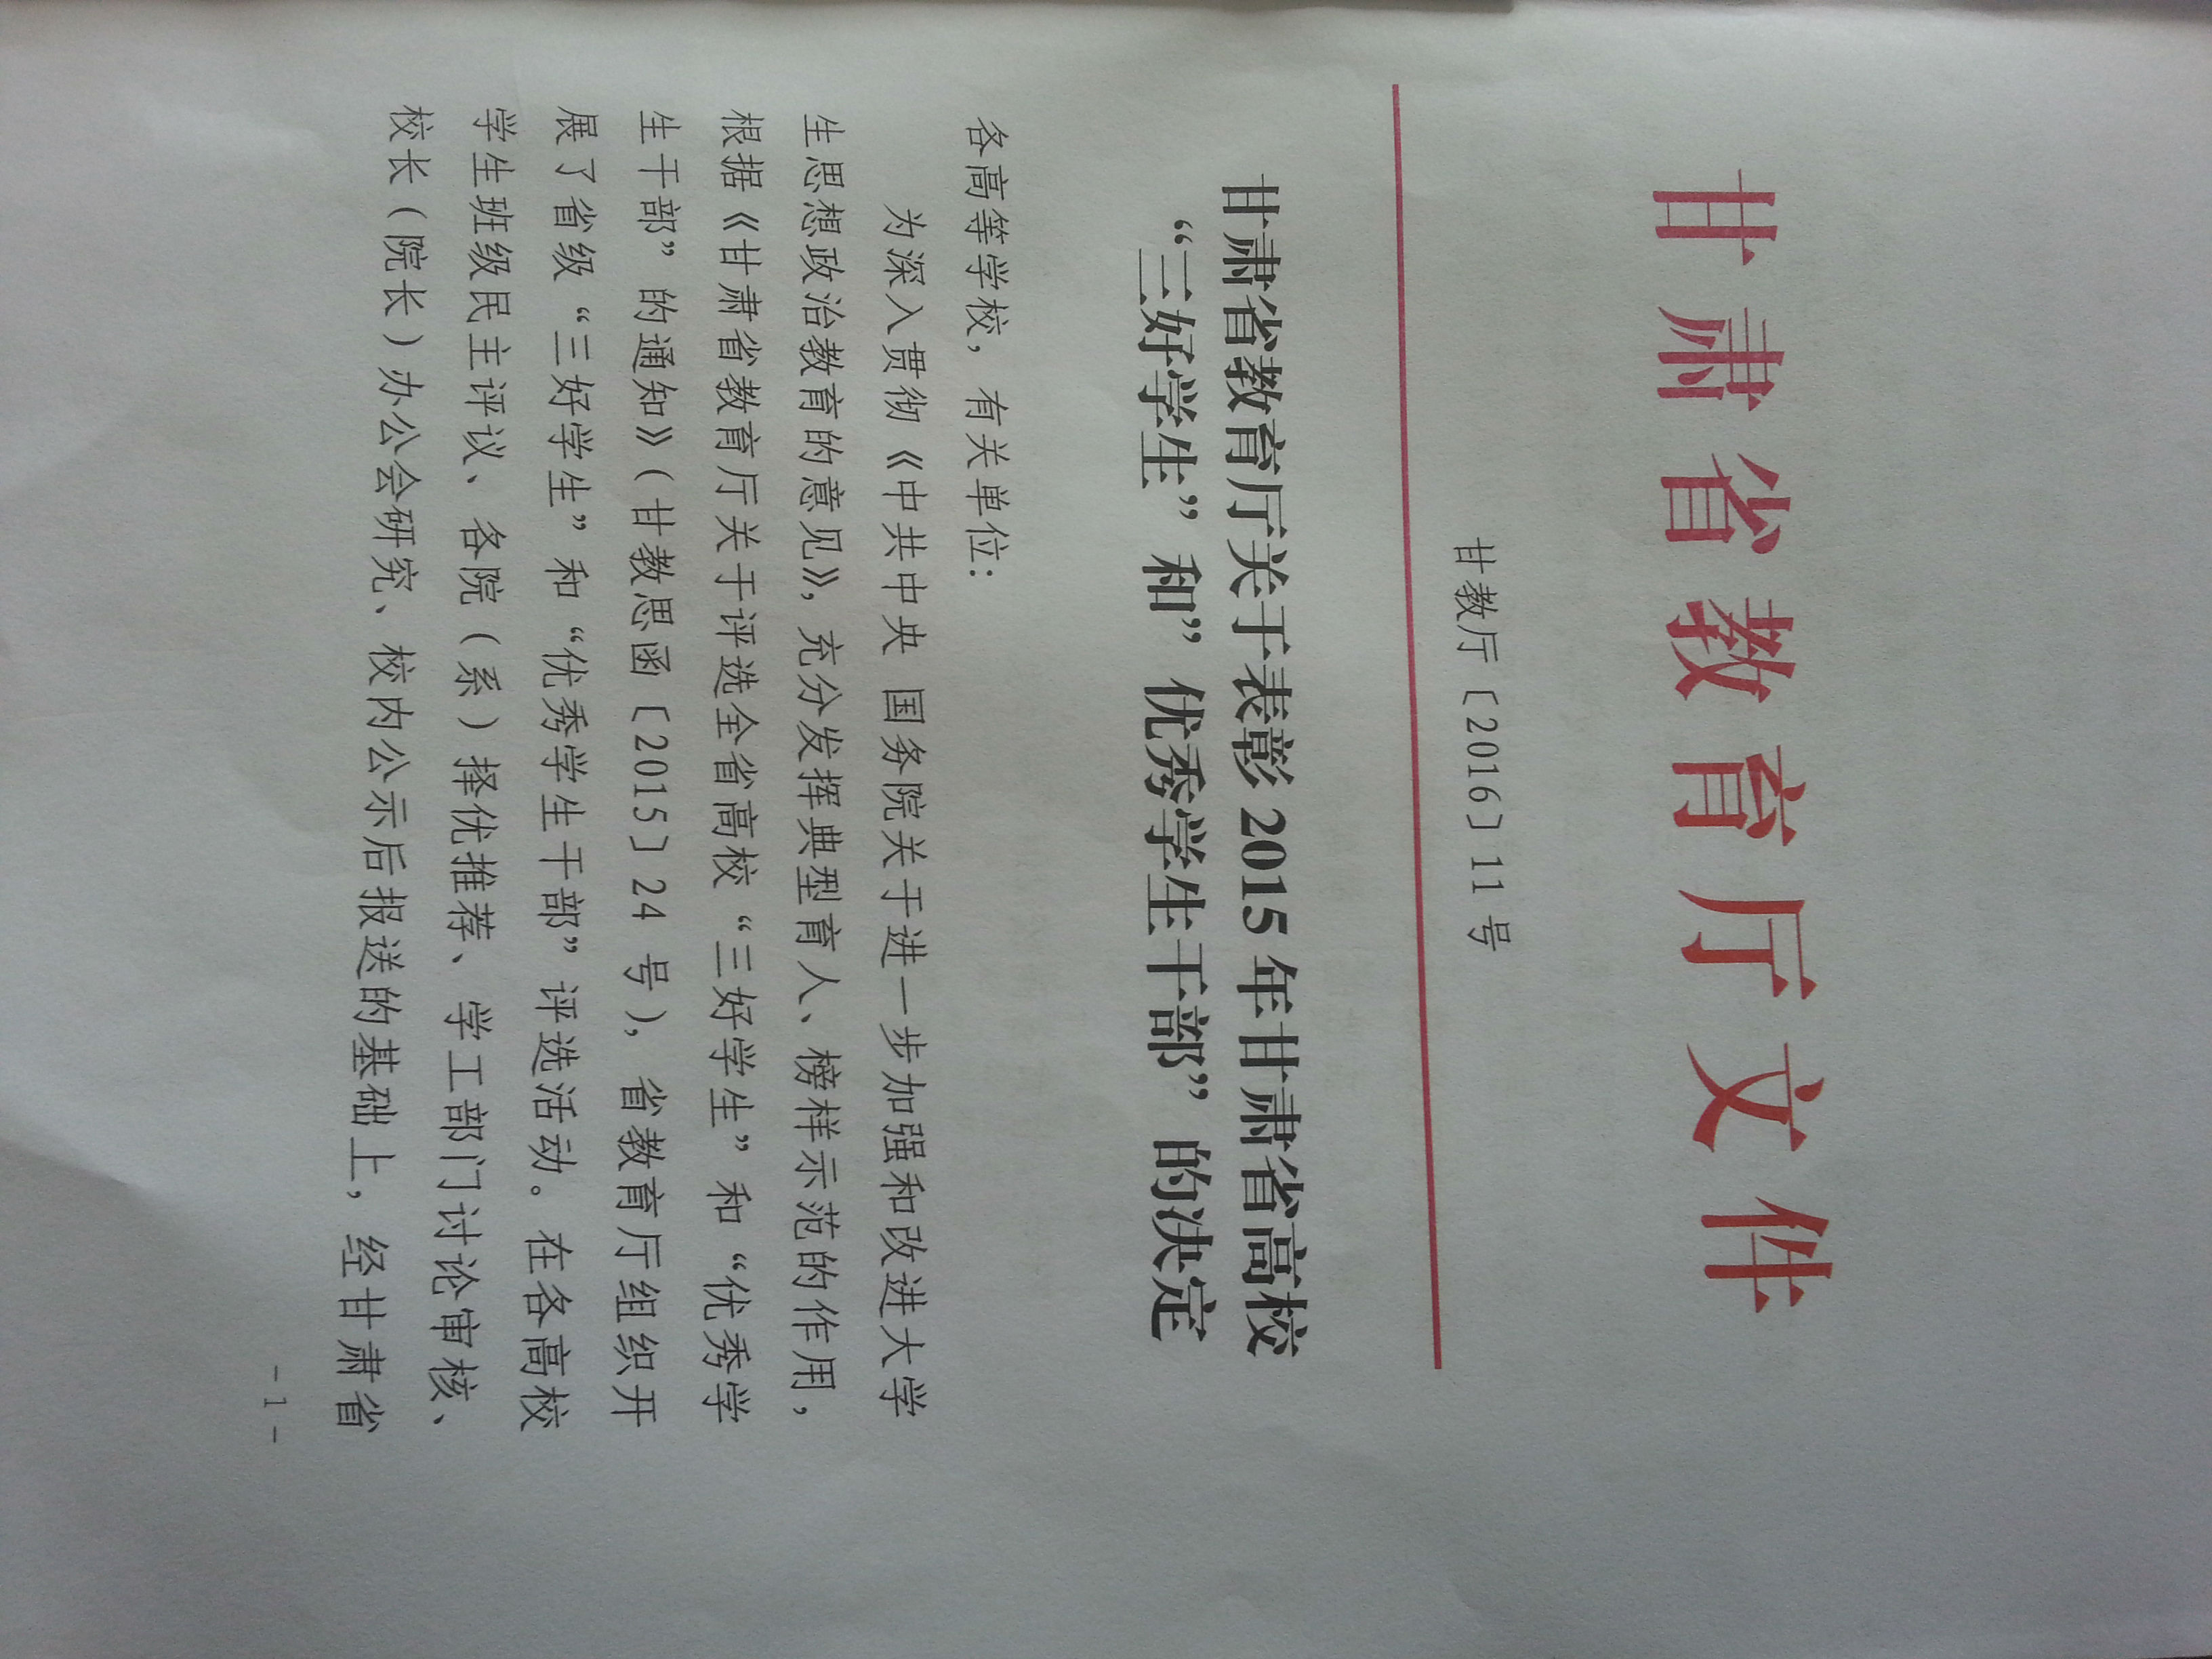 甘肃省教育厅文件
甘教厅〔2016〕11号
甘肃省教育厅关于表彰2015年甘肃省高校
“三好学生”和”优秀学生干部”的决定
各高等学校，有关单位：
为深入贯彻《中共中央 国务院关于进一步加强和改进大学
生思想政治教育的意见》，充分发挥典型育人、榜样示范的作用，
根据《甘肃省教育厅关于评选全省高校“三好学生”和“优秀学
生干部”的通知》（甘教思函〔2015〕24 号），省教育厅组织开
展了省级“三好学生”和“优秀学生干部”评选活动。在各高校
学生班级民主评议、各院（系）择优推荐、学工部门讨论审核、
校长（院长）办公会研究、校内公示后报送的基础上，经甘肃省
- 1 -